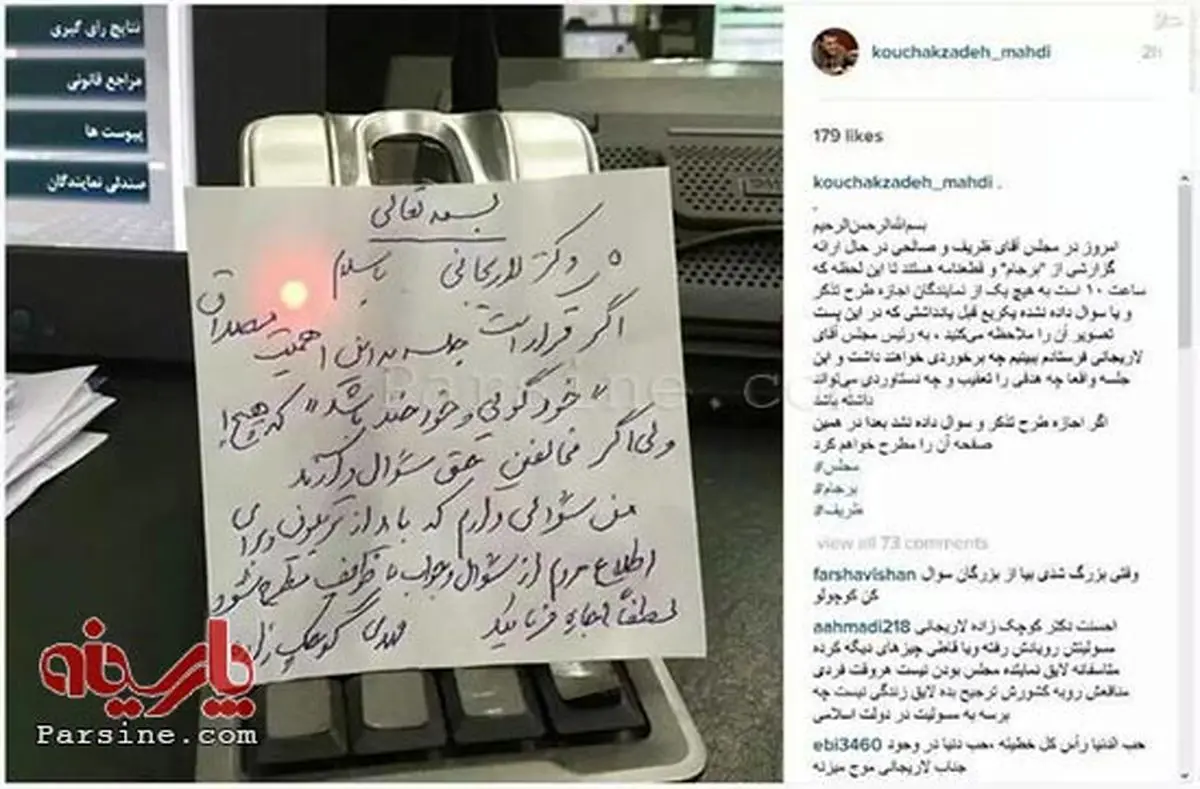 نتایج رای گیری
مراجع قانونی
پیوست ها
صندلی نمایندگان
بسمه تعالی
دکتر لاریجانی با سلام
اگر قرار است جلسه به این اهمیت مصداق
"خود گویی و خود خندی باشد" که هیچ!
ولی اگر مخالفین حق سؤال دارند
من سؤالی دارم که باید از تریبون و برای
اطلاع مردم از سؤال و جواب با ظریف مطرح شود
لطفاً اجازه فرمائید مهدی کوچک زاده
Parsine.com
پارسینه
Parsine.com
kouchakzadeh_mahdi
2h
179 likes
kouchakzadeh_mahdi .
.
بسم‌الله‌الرحمن‌الرحیم
امروز در مجلس آقای ظریف و صالحی در حال ارائه
گزارشی از "برجام" و قطعنامه هستند تا این لحظه که
ساعت ۱۰ است به هیچ یک از نمایندگان اجازه طرح تذکر
و یا سوال داده نشده یکربع قبل یادداشتی که در این پست
تصویر آن را ملاحظه می‌کنید ، به رئیس مجلس آقای
لاریجانی فرستادم ببینیم چه برخوردی خواهند داشت و این
جلسه واقعا چه هدفی را تعقیب و چه دستاوردی می‌تواند
داشته باشد
اگر اجازه طرح تذکر و سوال داده نشد بعدا در همین
صفحه آن را مطرح خواهم کرد
#مجلس
#برجام
#ظریف
view all 73 comments
farshavishan وقتی بزرگ شدی بیا از بزرگان سوال
کن کوچولو
aahmadi218 احسنت دکتر کوچک زاده لاریجانی
مسولیتش رویادش رفته ویا قاطی چیزهای دیگه کرده
متاسفانه لایق نماینده مجلس بودن نیست هروقت فردی
منافعش روبه کشورش ترجیح بده لایق زندگی نیست چه
برسه به مسولیت در دولت اسلامی
ebi3460 حب الدنیا رأس کل خطیئه ،حب دنیا در وجود
جناب لاریجانی موج میزنه